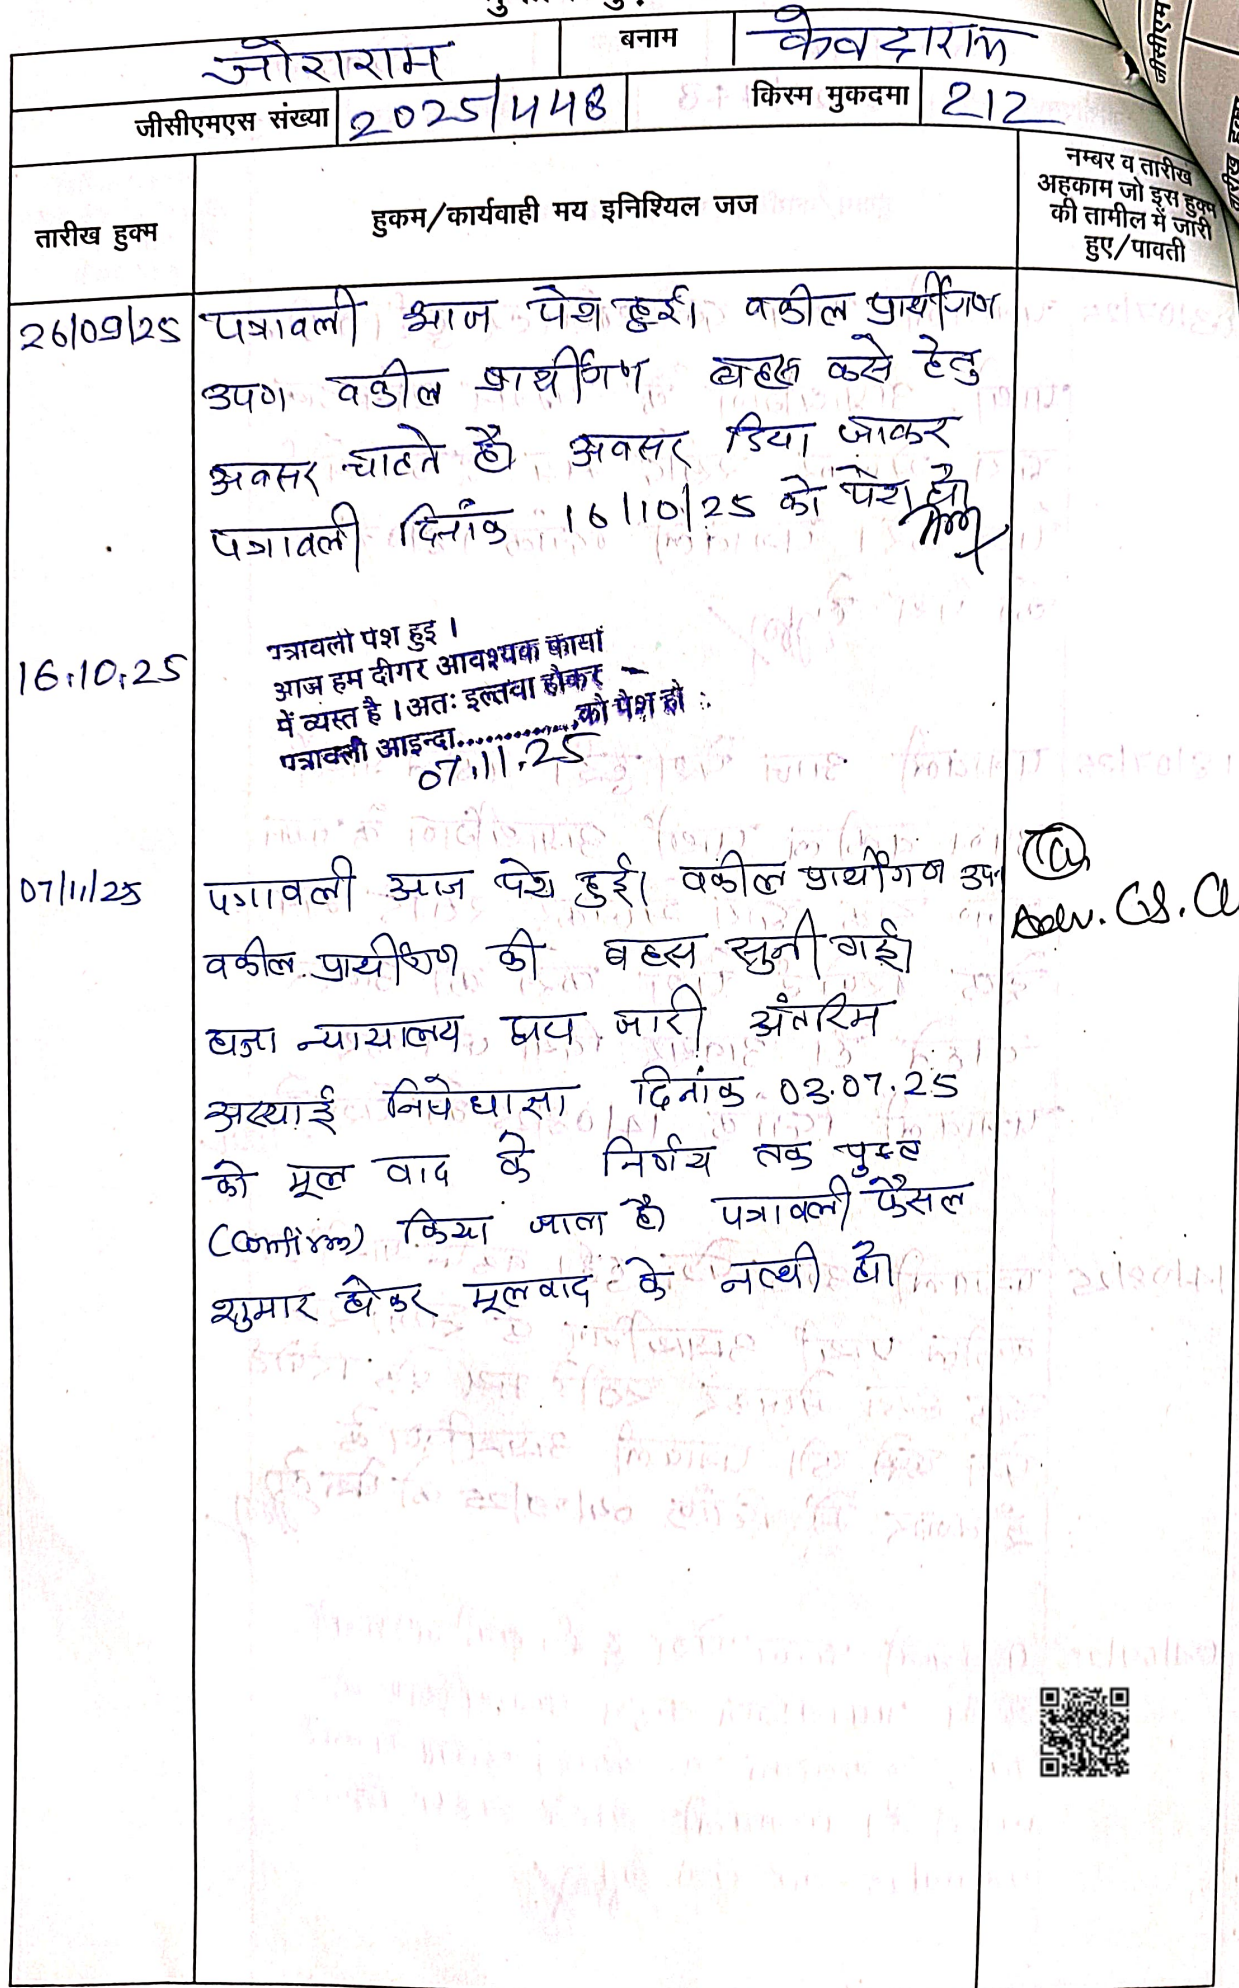 जोराराम बनाम केवदाराम
जीसीएमएस संख्या 2025/448 किस्म मुकदमा 212
तारीख हुक्म
हुकम/कार्यवाही मय इनिश्यिल जज
नम्बर व तारीख
अहकाम जो इस हुक्म
की तामील में जारी
हुए/पावती
26/09/25 पत्रावली आज पेश हुई। वकील प्रार्थीगण
उप० वकील प्रार्थीगण बहस करने हेतु
अवसर चाहते है। अवसर दिया जाकर
पत्रावली दिनांक 16/10/25 को पेश हो।
16.10.25
पत्रावली पेश हुई ।
आज हम दीगर आवश्यक कार्यो
में व्यस्त है । अतः इल्तवा होकर
पत्रावली आइन्दा..............को पेश हो
07.11.25
07/11/25 पत्रावली आज पेश हुई। वकील प्रार्थीगण उप०
वकील प्रार्थीगण की बहस सुनी गई।
न्यायालय द्वारा जारी अंतरिम
अस्थाई निषेधाज्ञा दिनांक 03.07.25
को मूल वाद के निर्णय तक पुष्ट
(Confirm) किया जाता है। पत्रावली फैसल
शुमार होकर मूलवाद के नत्थी हो।
Adv.
जीसीएम